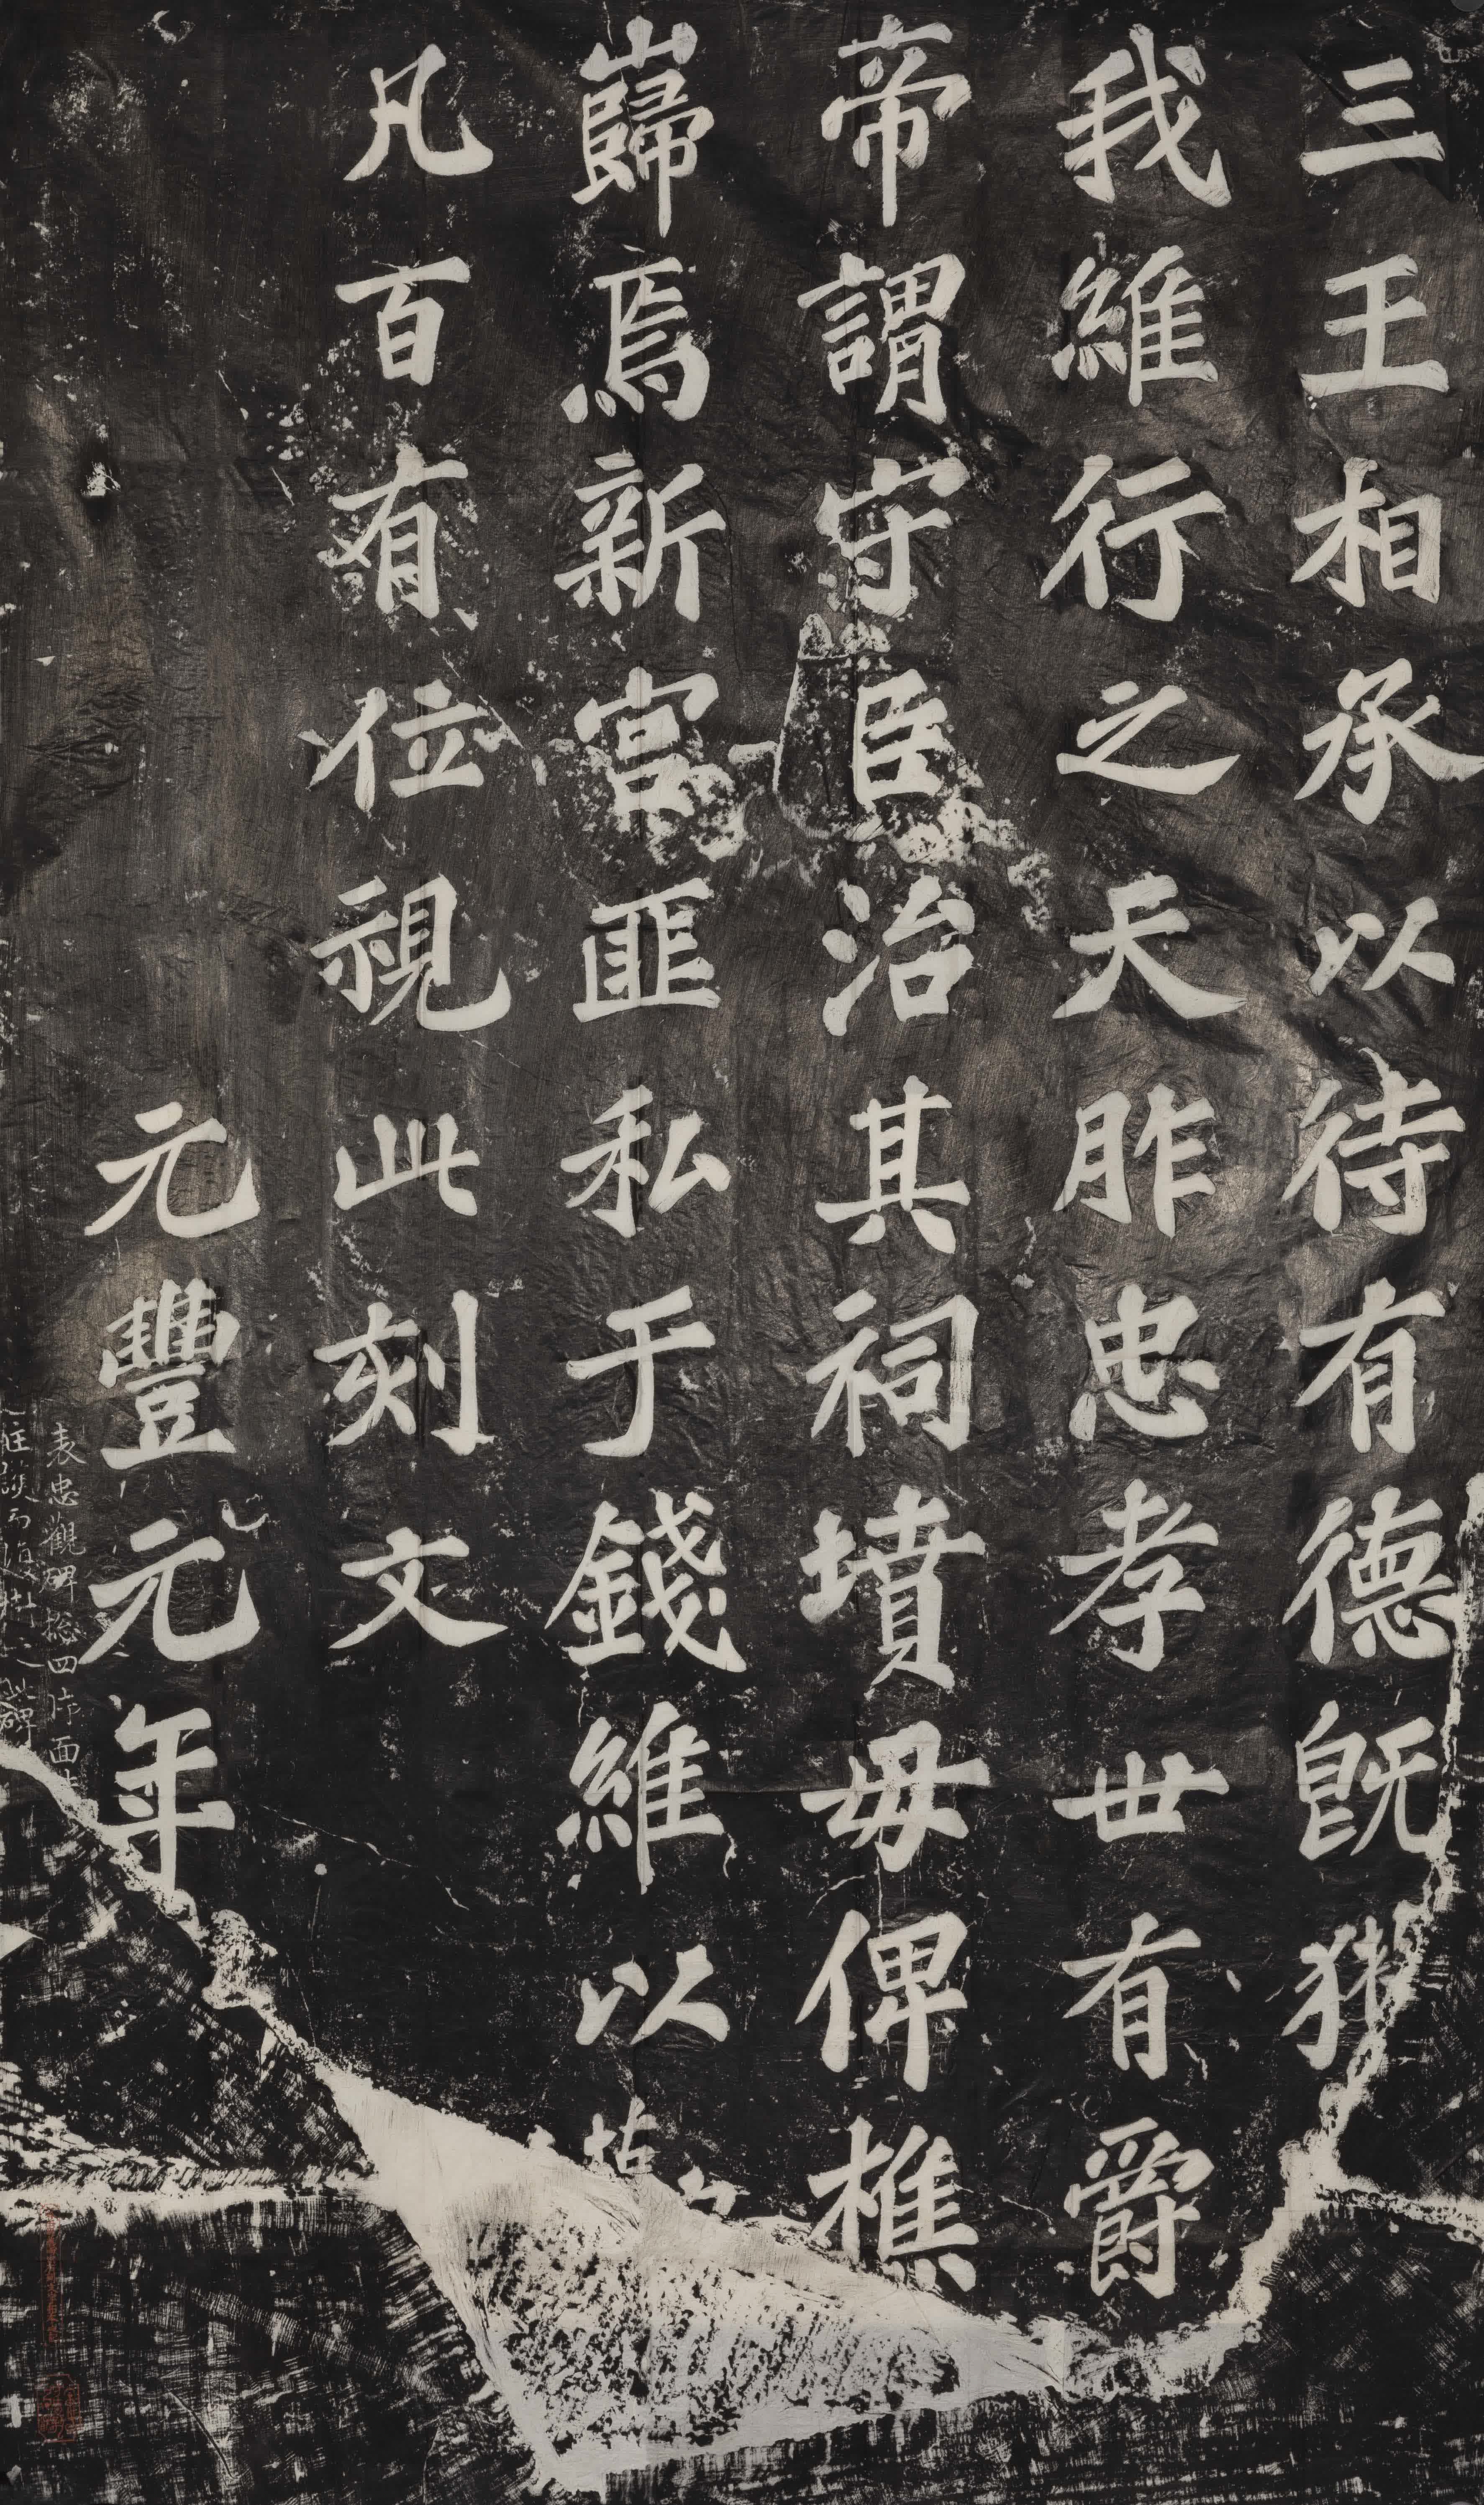 三王相承以待有德既獲
我維行之天胙忠孝世有爵
帝謂守臣治其祠墳毋俾樵
巋焉新宮匪私于錢維以
凡百有位視此刻文
元豐元年
表忠觀碑總四片面